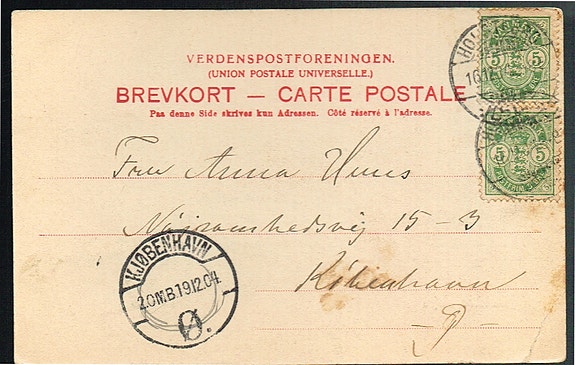 VERDENSPOSTFORENINGEN.
(UNION POSTALE UNIVERSELLE.)
BREVKORT — CARTE POSTALE
Paa denne Side skrives kun Adressen. Côté réservé à l'adresse.
5 5
5 5
Fru Anna
15-3
København
Ø.
KJØBENHAVN
2.OMB.19.12.04.
Ø.